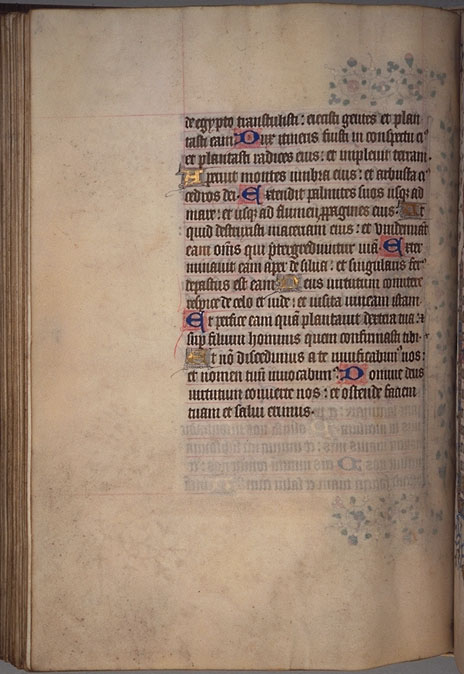 de egypto transtulisti: eiecisti gentes et plan
tasti eam Dux itineris fuisti in conspectu ei᷒
et plantasti radices eius: et impleuit terram.
Aperuit montes umbra eius: et arbusta ei᷒
cedros dei. Extendit palmites suos usq̨ ad
mare: et usq̨ ad flumen ꝓpagines eius. Ut
quid destruxisti maceriam eius: et vindemiāt
eam om̄s qui p̄tergrediuntur uiā. Exter
minauit eam aper de silua: et singularis fer᷒
depastus est eam Deus uirtutum conuertere
respice de celo et uide: et uisita uineam istam.
Et perfice eam quā plantauit dextera tua: et
sup̱ filium hominis quem confirmasti tibi.
Et nō discedimus a te uiuificabim᷒ nos:
et nomen tuū inuocabim᷒. Domine deus
uirtutum conuerte nos: et ostende faciem
tuam et salui erimus.